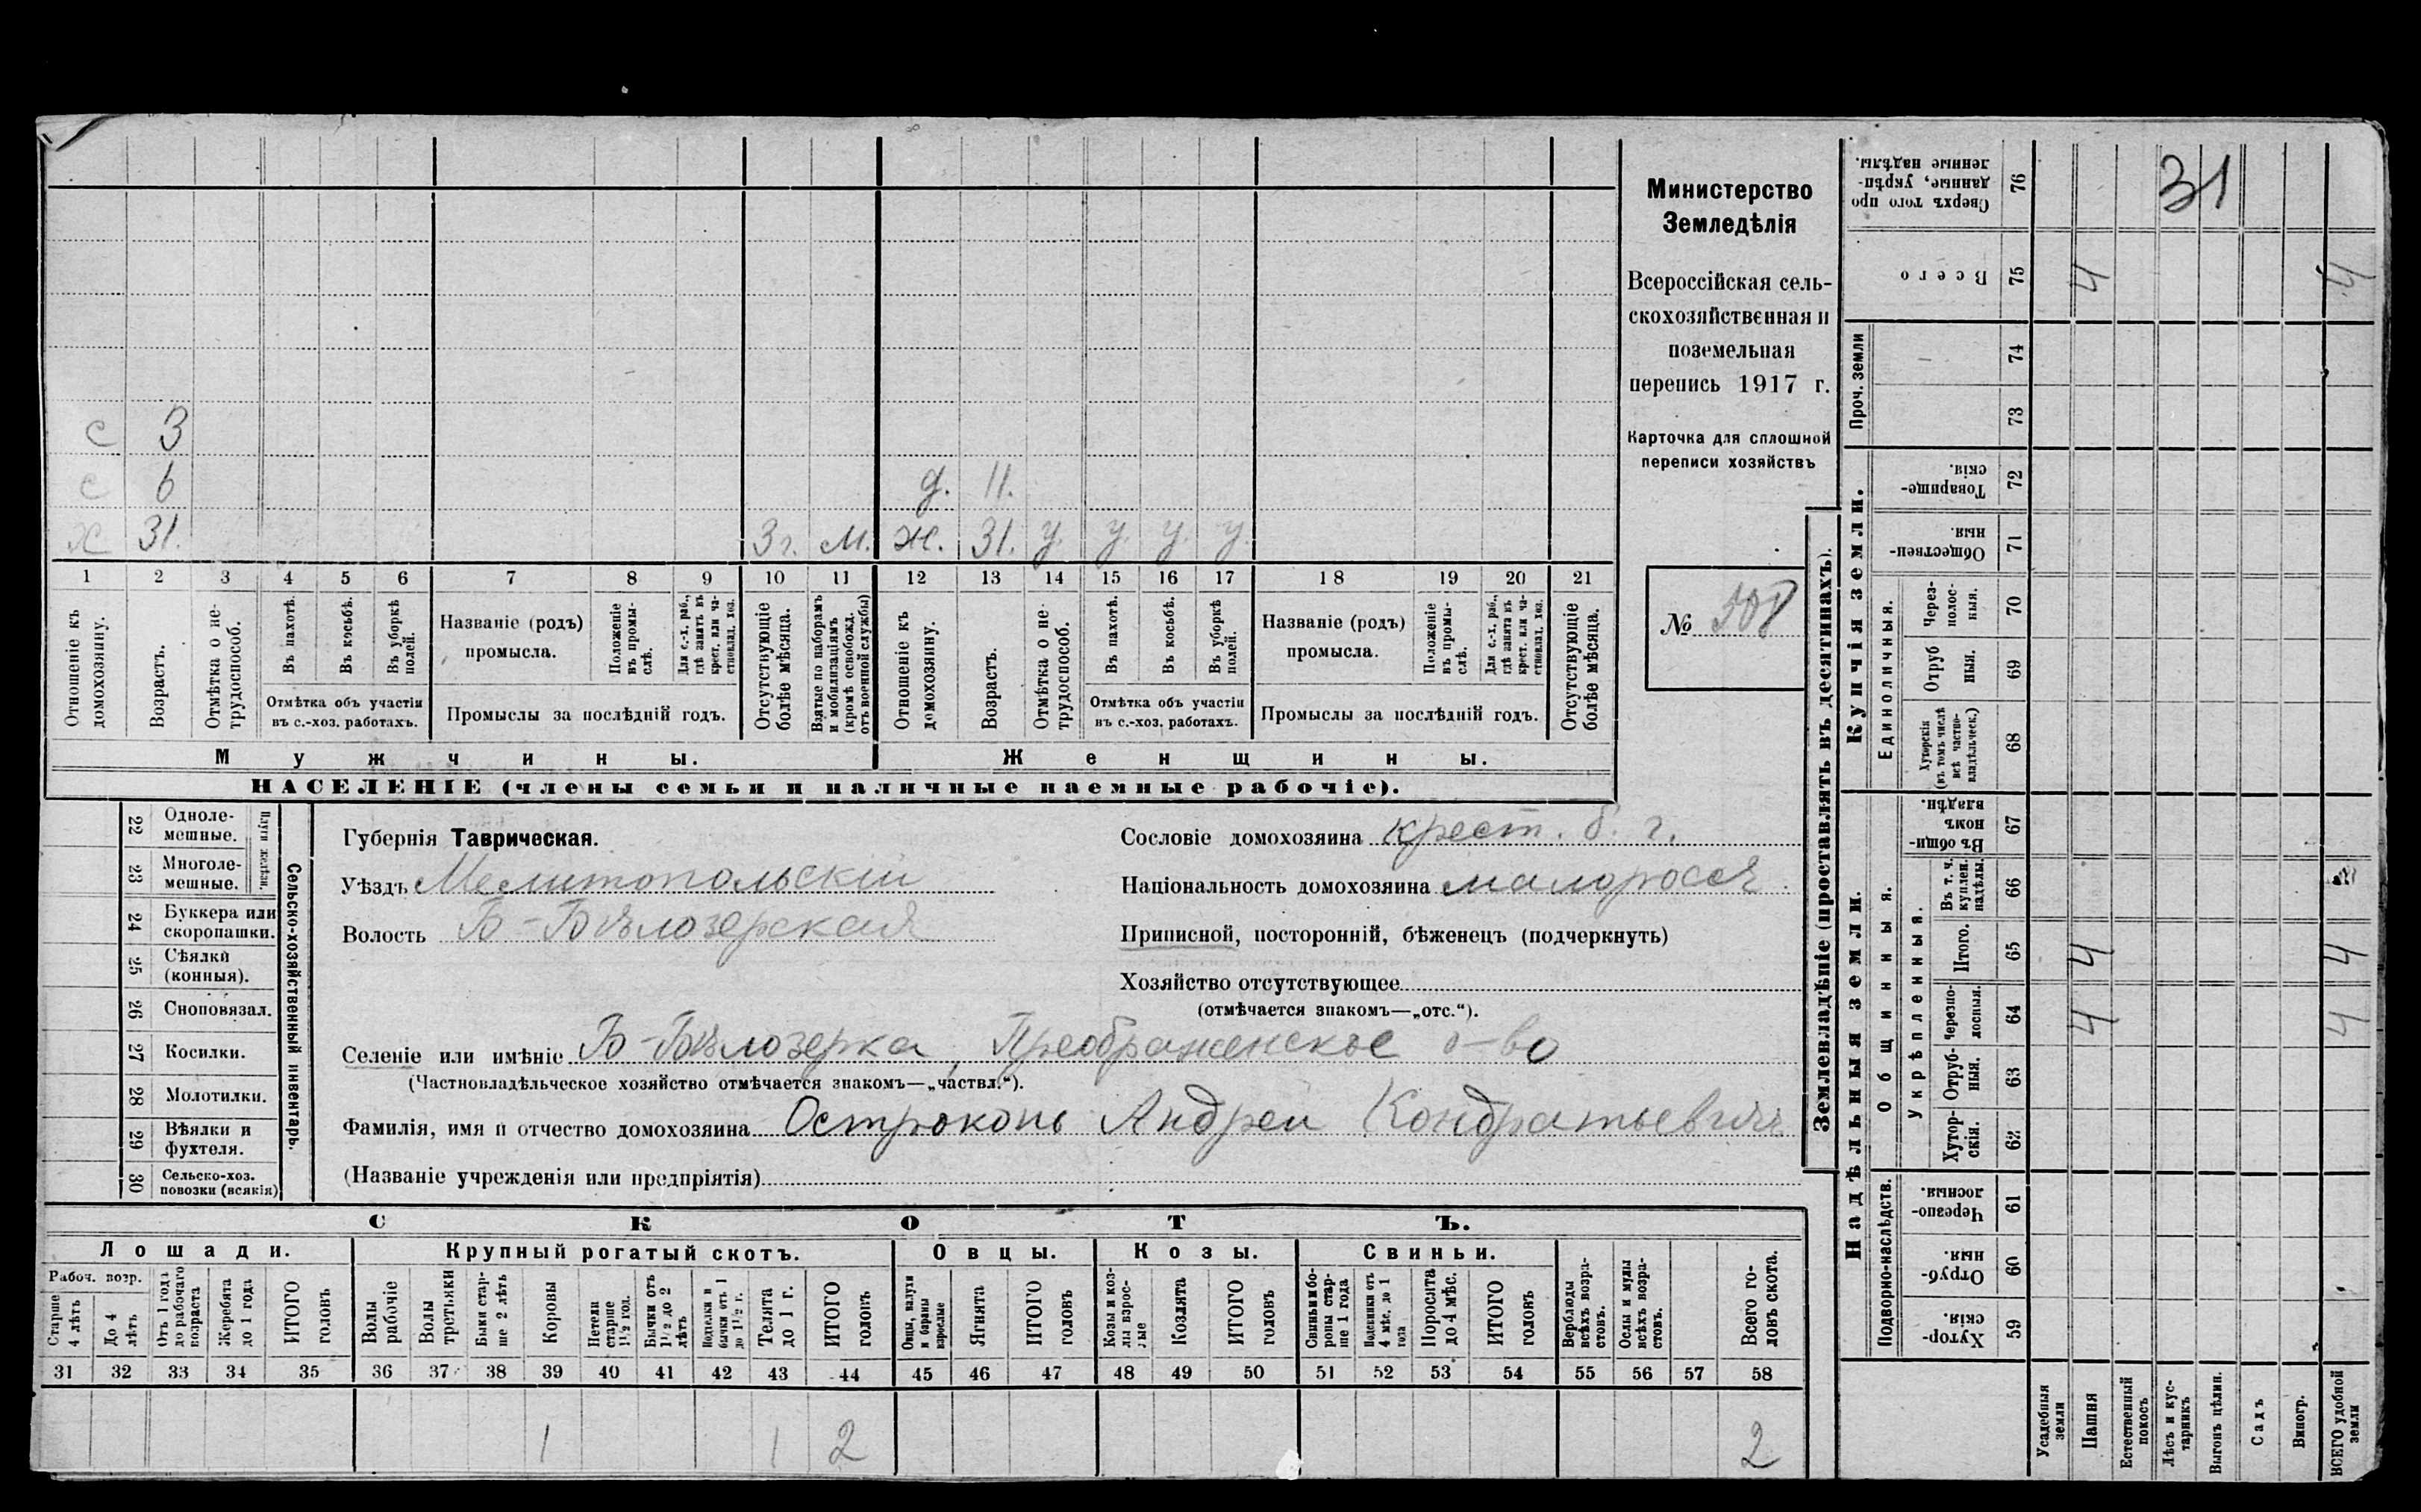 Министерство
Земледѣлія
Всероссійская сель-
скохозяйственная и
поземельная
перепись 1917 г.
Карточка для сплошной
переписи хозяйствъ
№
с 3
с 6 д. 11.
х 31. 3 г. м. ж. 31. у. у. у. у.
1 2 3 4 5 6 7 8 9 10 11 12 13 14 15 16 17 18 19 20 21
Отношеніе къ домохозяину.
Возрастъ.
Отмѣтка о не-трудоспособ.
Въ пахотѣ.
Въ косьбѣ.
Въ уборкѣ полей.
Отмѣтка объ участіи
въ с.-хоз. работахъ.
Названіе (родъ)
промысла.
Положеніе въ промы-слѣ.
Для с.-х. раб., гдѣ занятъ въ крест. или ча-стновлад. хоз.
Промыслы за послѣдній годъ.
Отсутствующіе болѣе мѣсяца.
Взятые по наборамъ и мобилизаціямъ (кромѣ освобожд. отъ военной службы)
Отношеніе къ домохозяину.
Возрастъ.
Отмѣтка о не-трудоспособ.
Въ пахотѣ.
Въ косьбѣ.
Въ уборкѣ полей.
Отмѣтка объ участіи
въ с.-хоз. работахъ.
Названіе (родъ)
промысла.
Положеніе въ промы-слѣ.
Для с.-х. раб., гдѣ занята въ крест. или ча-стновлад. хоз.
Промыслы за послѣдній годъ.
Отсутствующіе болѣе мѣсяца.
Мужчины. Женщины.
НАСЕЛЕНІЕ (члены семьи и наличные наемные рабочіе).
22 Одноле-мешные.
23 Многоле-мешные.
Плуги желѣзн.
24 Буккера или скоропашки.
25 Сѣялки (конныя).
26 Сноповязал.
27 Косилки.
28 Молотилки.
29 Вѣялки и фухтеля.
30 Сельско-хоз. повозки (всякія)
Сельско-хозяйственный инвентарь.
Губернія Таврическая.
Уѣздъ Мелитопольскій
Волость Б-Бѣлозерская
Сословіе домохозяина крест. б. г.
Національность домохозяина малороссъ.
Приписной, посторонній, бѣженецъ (подчеркнуть)
Хозяйство отсутствующее
(отмѣчается знакомъ—„отс.“).
Селеніе или имѣніе Б-Бѣлозерка, Преображенское о-во
(Частновладѣльческое хозяйство отмѣчается знакомъ—„частвл.“).
Фамилія, имя и отчество домохозяина Остроконь Андрей Кондратьевичъ
(Названіе учрежденія или предпріятія)
СКОТЪ.
Лошади. Крупный рогатый скотъ. Овцы. Козы. Свиньи.
Рабоч. возр.
Старше 4 лѣтъ
До 4 лѣтъ
Отъ 1 года до рабочаго возраста
Жеребята до 1 года
ИТОГО головъ
Волы рабочіе
Волы третьяки
Быки стар-ше 2 лѣтъ
Коровы
Нетели старше 1½ год.
Бычки отъ 1½ до 2 лѣтъ
Подтелки и бычки отъ 1 до 1½ г.
Телята до 1 г.
ИТОГО головъ
Овцы, валухи и бараны взрослые
Ягнята
ИТОГО головъ
Козы и коз-лы взрос-лые
Козлята
ИТОГО головъ
Свиньи и бо-ровы стар-ше 1 года
Подсвинки отъ 4 мѣс. до 1 года
Поросята до 4 мѣс.
ИТОГО головъ
Верблюды всѣхъ возра-стовъ.
Ослы и мулы всѣхъ возра-стовъ.
Всего го-ловъ скота.
31 32 33 34 35 36 37 38 39 40 41 42 43 44 45 46 47 48 49 50 51 52 53 54 55 56 57 58
1 1 2 2
Землевладѣніе (проставлять въ десятинахъ).
Надѣльныя земли.
Купчія земли.
Проч. земли
Подворно-наслѣдств.
Общинныя.
Укрѣпленныя.
Единоличныя.
Сверхъ того про данные, укрѣп-ленные надѣлы. 76 31
Всего 75 4 4
74
73
Товарище-скія. 72
Обществен-ныя. 71
Через-полос-ныя. 70
Отруб ныя. 69
Хуторскія (въ томъ числѣ всѣ частно-владѣльческ.) 68
Въ общи-номъ владѣн. 67
Въ т. ч. куплен. надѣлы. 66
Итого. 65 4 4
Черезпо-лосныя. 64 4 4
Отруб-ныя. 63
Хутор-скія. 62
Черезпо-лосныя. 61
Отруб-ныя. 60
Хутор-скія. 59
Усадебныя земли
Пашня
Естественный покосъ
Лѣсъ и кус-тарникъ
Выгонъ цѣлин.
Садъ
Виногр.
ВСЕГО удобной земли